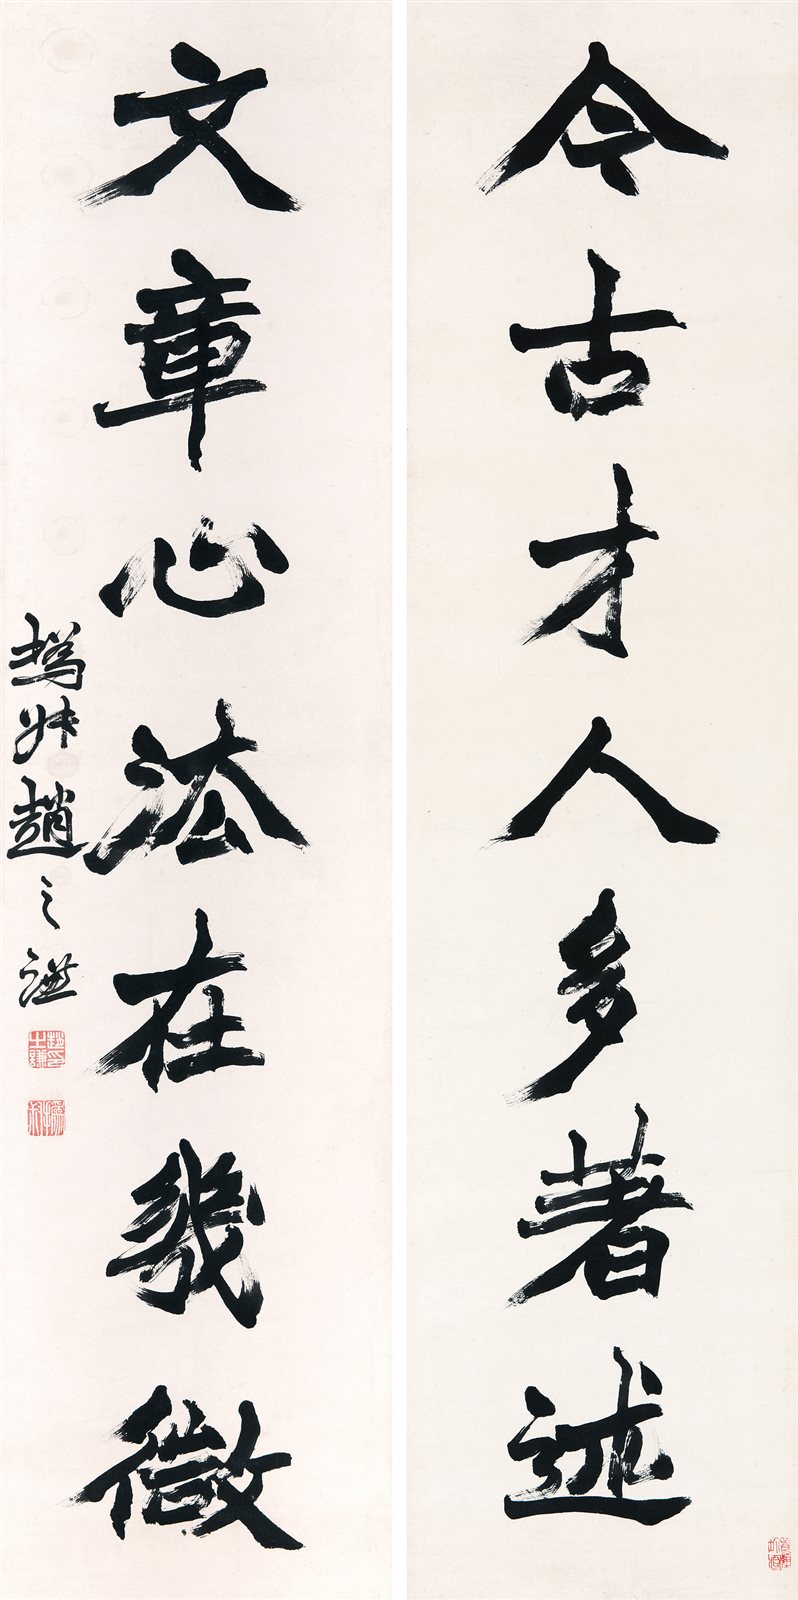 今古才人多著述
文章心法在幾微
撝叔趙之謙